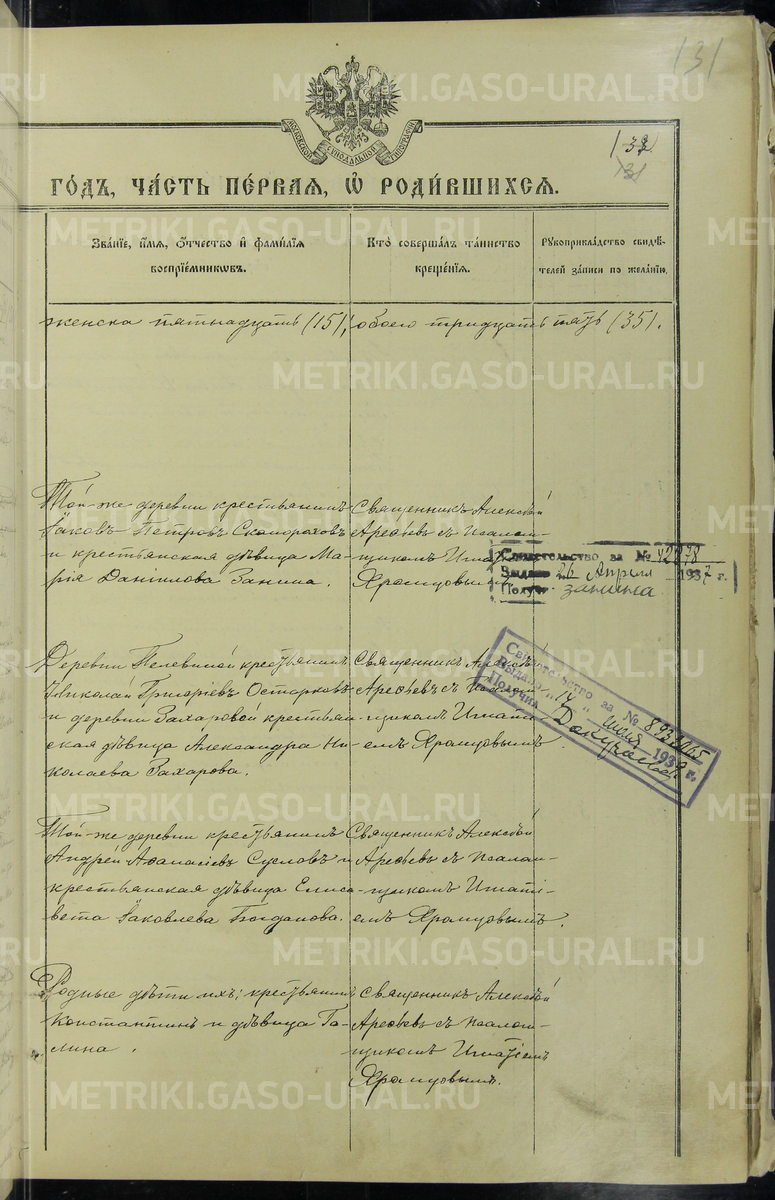 131
132
131
МОСКОВСКОЙ СѴНОДАЛЬНОЙ ТИПОГРАФІИ
ГО́ДЪ, ЧА́СТЬ ПЕ́РВАЯ, Ѡ҆ РОДИ́ВШИХСЯ.
Зва́нїе, и҆́мѧ, ѻ҆́тчество и҆ фами́лїѧ воспрїе́мникѡвъ.
Кто̀ соверша́лъ та́инство креще́нїѧ.
Рꙋкоприкла́дство свидѣ́телей за́писи по жела́нїю.
женска пятнадцать (15), обоего тридцать пять (35).
Той-же деревни крестьянинъ
Іаковъ Петровъ Скоморохов
и крестьянская дѣвица Ма-
рія Даніилова Занина.
Священникъ Алексѣй
Арефьевъ съ псалом-
щикомъ Игнат
Храмцовым
Свидетельство за № 42878
Выдано 26 Апреля 1937 г.
Получ. Занина
Деревни Пелевиной крестьянин
Николай Григоріевъ Остарковъ
и деревни Захаровой крестьян-
ская дѣвица Александра Ни-
колаева Захарова.
Священникъ Алексѣй
Арефьевъ съ псалом-
щикомъ Игнаті-
емъ Храмцовымъ.
Свидетельство за №
Выдано „14" июня 193 г.
Получил
Той-же деревни крестьянинъ
Андрей Аѳанасіевъ Сусловъ и
крестьянская дѣвица Елиса-
вета Іаковлева Богданова.
Священникъ Алексѣй
Арефьевъ съ псалом-
щикомъ Игнаті-
емъ Храмцовымъ.
Родные дѣти ихъ: крестьянинъ
Константинъ и дѣвица Га-
лина.
Священникъ Алексѣй
Арефьевъ съ псалом-
щикомъ Игнатіемъ
Храмцовымъ.
METRIKI.GASO-URAL.RU